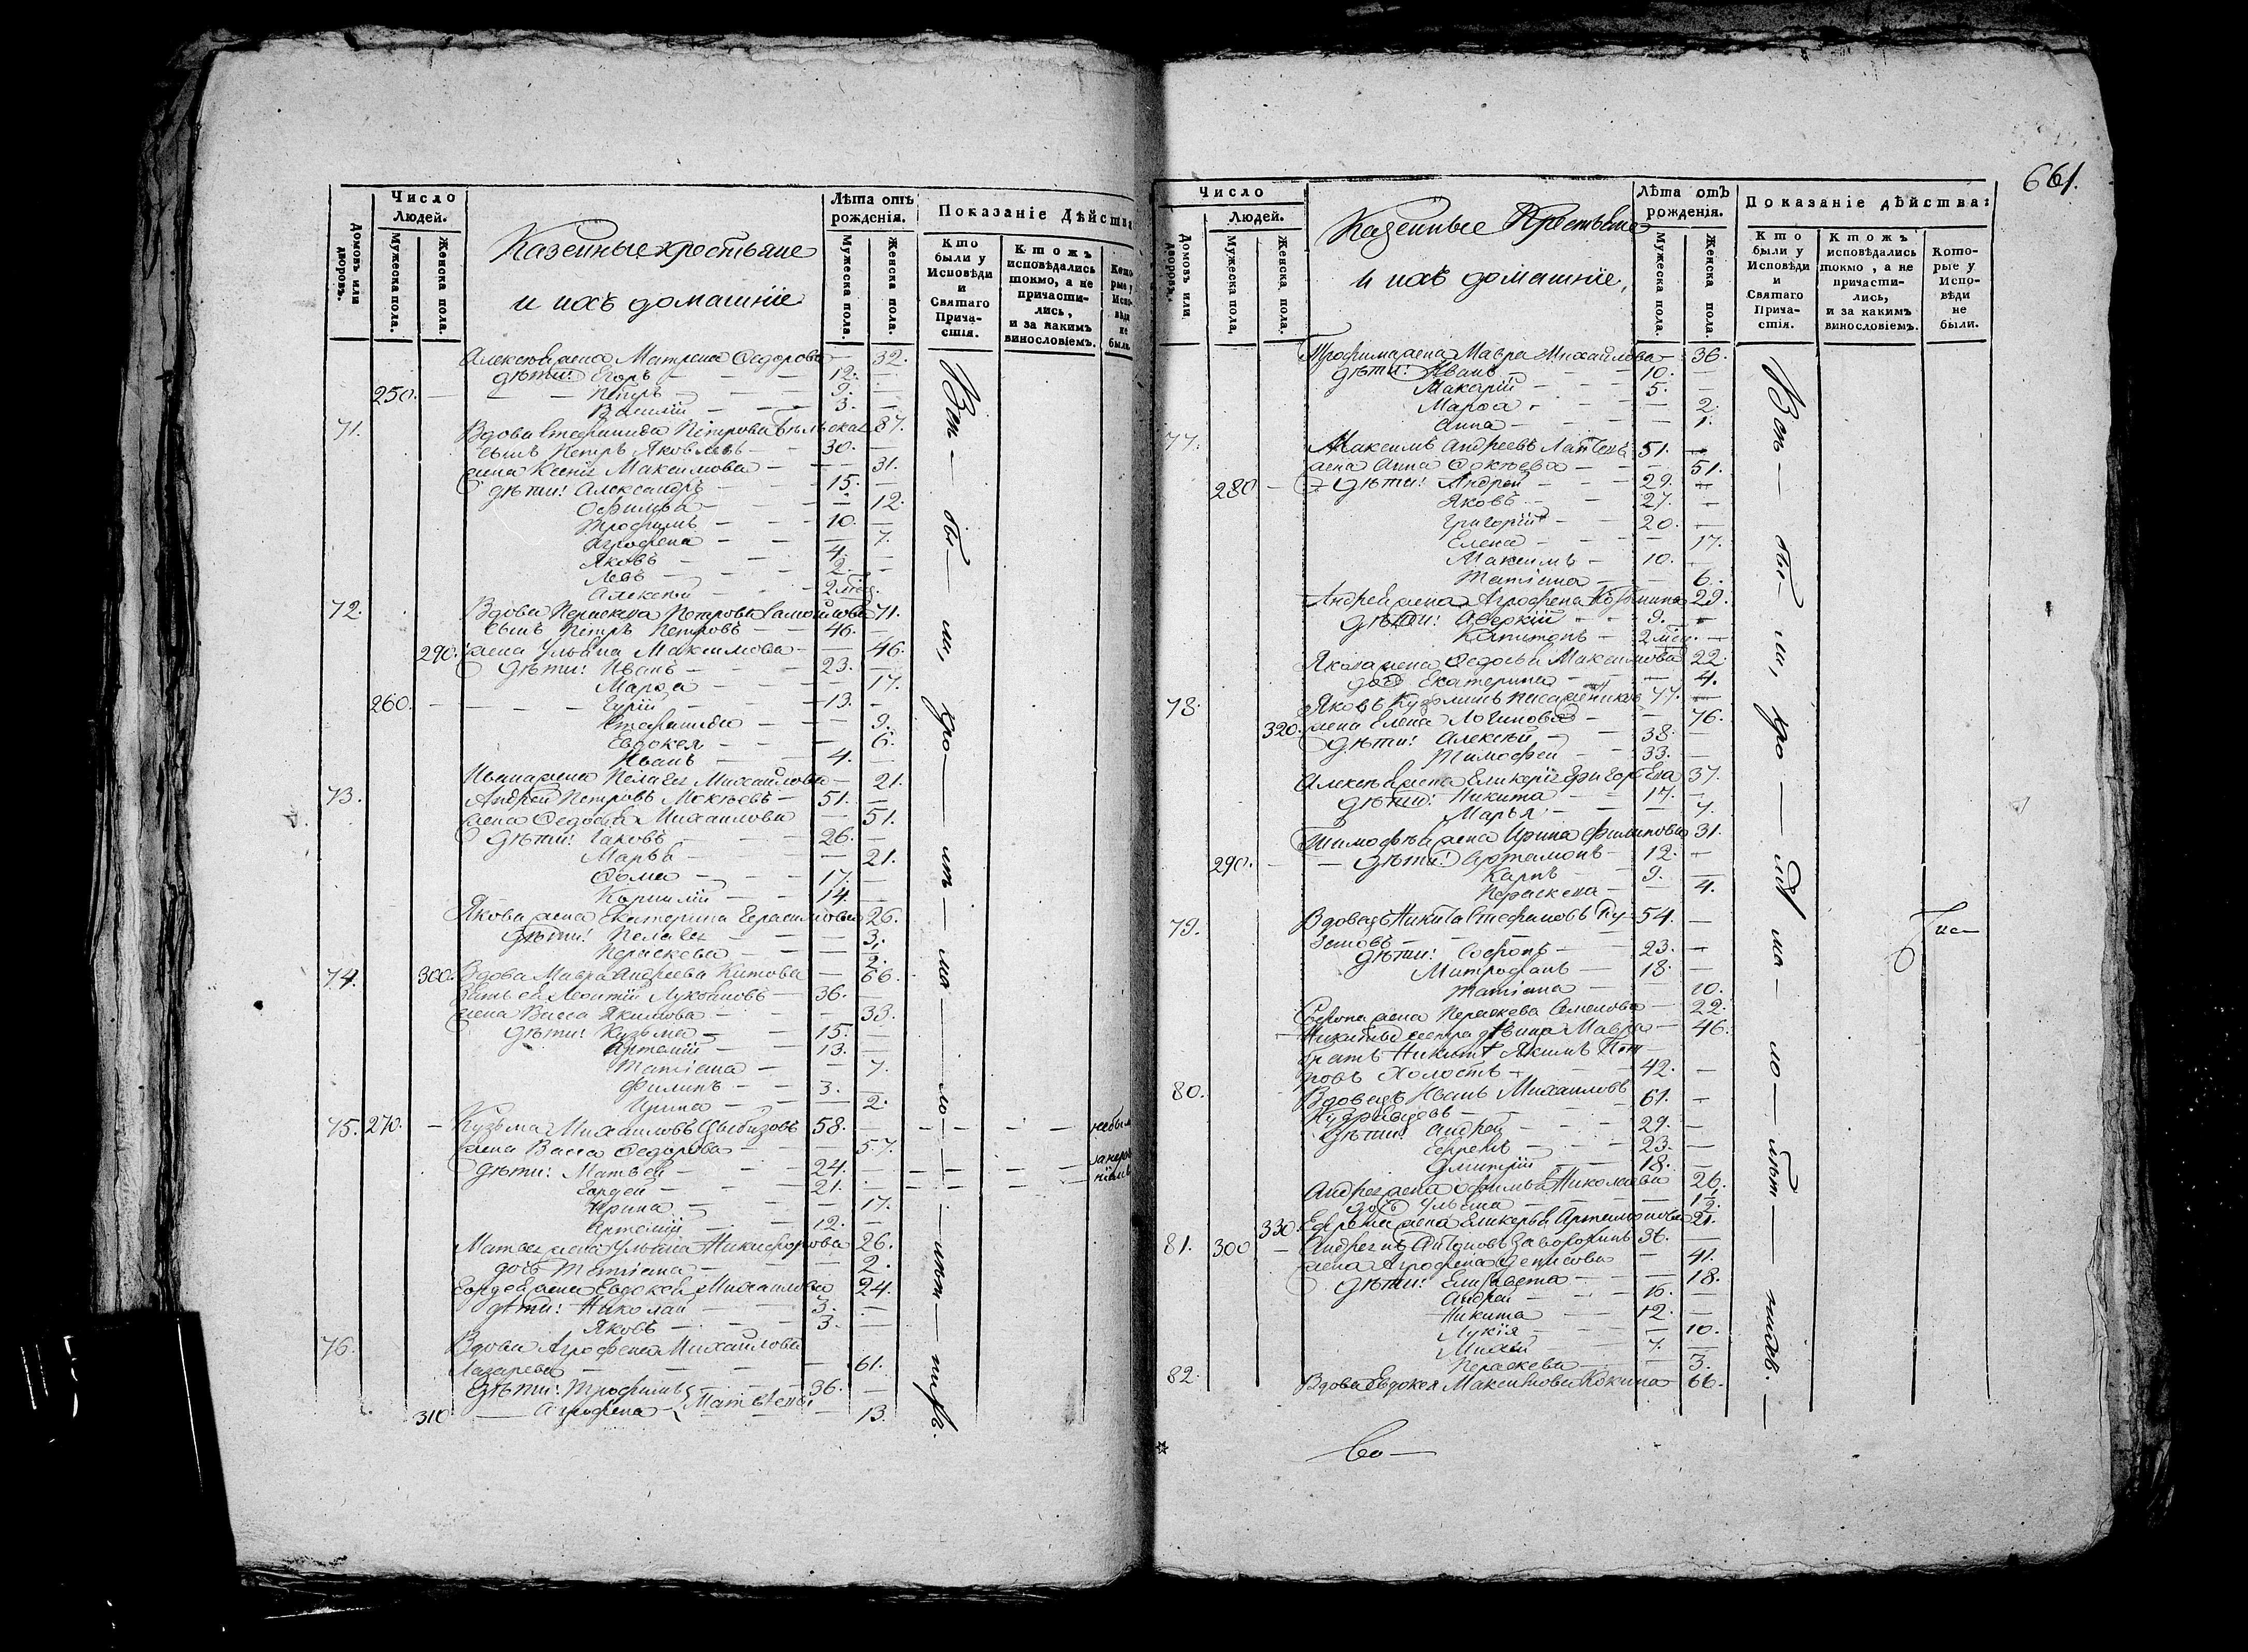 Число
Людей.
Домовъ или дворовъ.
Мужеска пола.
Женска пола.
Казенные крестьяне
и ихъ домашнїе
Лѣта отъ
рожденїя.
Мужеска пола.
Женска пола.
Показанїе дѣйства
Кто
были у
Исповѣди
и
Святаго
Прича-
стїя.
Ктожъ
исповѣдались
токмо, а не
причасти-
лись,
и за какимъ
винословїемъ.
Кото
рые у
Испо-
вѣди
не
были
Алексѣя жена Матрена Федорова — 32.
дѣти: Егоръ 12.
250. Петръ 9.
Василїй 3.
71. Вдова Стефанида Петрова 87.
сынъ Петръ Яковлевъ 30.
жена Ксенїя Максимова 31.
дѣти: Александръ 15.
Офимья 12.
Трофимъ 10.
Агрофена 7.
Яковъ 4.
Левъ 2.
Алексѣй 2 мѣс.
72. Вдова Пераскева Петрова Самойлова 71.
сынъ Петръ Петровъ 46.
290. жена Ульяна Максимова 46.
дѣти: Иванъ 23.
Марфа 17.
260. Гурїй 13.
Стефанида 9.
Евдокея 6.
Иванъ 4.
Ивана жена Пелагея Михайлова 21.
73. Андрей Петровъ Мокѣевъ 51.
жена Федосья Михайлова 51.
дѣти: Iаковъ 26.
Марья 21.
Фома 17.
Корнилїй 14.
Якова жена Екатерина Герасимова 26.
дѣти: Пелагея 3.
Пераскева 2.
74. 300. Вдова Мавра Андреева Китова 66.
Зять ей Леонтїй Лукояновъ 36.
жена Васса Якимова 33.
дѣти: Кузьма 15.
Артемїй 13.
Татїана 7.
Филипъ 3.
Ирина 2.
75. 270. Кузьма Михайловъ Цыбизовъ 58.
жена Васса Федорова 57.
дѣти: Матвей 24.
Гордей 21.
Ирина 17.
Артемїй 12.
Матвея жена Ульяна Никифорова 26.
дочь Татїана 2.
Гордея жена Евдокея Михайлова 24.
дѣти: Николай 3.
Яковъ 3.
76. Вдова Агрофена Михайлова
Лазарева 61.
дѣти: Трофимъ 36.
310. Агрофена Матвѣевы 13.
661.
Число
Людей.
Домовъ или дворовъ.
Мужеска пола.
Женска пола.
Казенные Крестьяне
и ихъ домашнїе,
Лѣта отъ
рожденїя.
Мужеска пола.
Женска пола.
Показанїе дѣйства:
Кто
были у
Исповѣди
и
Святаго
Прича-
стїя.
Ктожъ
исповѣдались
токмо, а не
причасти-
лись,
и за какимъ
винословїемъ.
Кото-
рые у
Испо-
вѣди
не
были.
Трофима жена Мавра Михайлова 36.
дѣти: Иванъ 10.
Макарїй 5.
Марфа 2.
Анна 1.
77. Максимъ Андреевъ 51.
жена Анна Фокѣева 51.
280 дѣти: Андрей 29.
Яковъ 27.
Григорїй 20.
Елена 17.
Максимъ 10.
Татїана 6.
Андрея жена Агрофена Козьмина 29.
дѣти: Аверкїй 9.
Капитонъ 2 мѣс.
Якова жена Федосья Максимова 22.
дочь Екатерина 4.
78. Яковъ 77.
320. жена Елена Логинова 76.
дѣти: Алексѣй 38.
Тимофей 33.
Алексѣя жена Гликерїя Григорьева 37.
дѣти: Никита 17.
Марья 7.
Тимофѣя жена Ирина Филипова 31.
290. дѣти: Артамонъ 12.
Карпъ 9.
Пераскева 4.
79. Вдовецъ Никита Стефановъ Пу- 54.
зановъ
дѣти: Софронъ 23.
Митрофанъ 18.
Татїана 10.
Софрона жена Пераскева Семенова 22.
Никиты сестра дѣвица Мавра 46.
братъ Никиты Якимъ Пет-
ровъ Холостъ 42.
80. Вдовецъ Иванъ Михайловъ
61.
дѣти: Андрей 29.
Ефремъ 23.
Дмитрїй 18.
Андрея жена Офимья Николаева 26.
дочь Ульяна
330. Ефрема жена Гликерья Артамонова 21.
81. 300 Андреянъ Антоновъ 36.
жена Агрофена Денисова 41.
дѣти: Елисавета 18.
Андрей 16.
Никита 12.
Лукїя 10.
Михей 7.
Пераскева 3.
82. Вдова Евдокея Максимова Кокина 66.
Во—